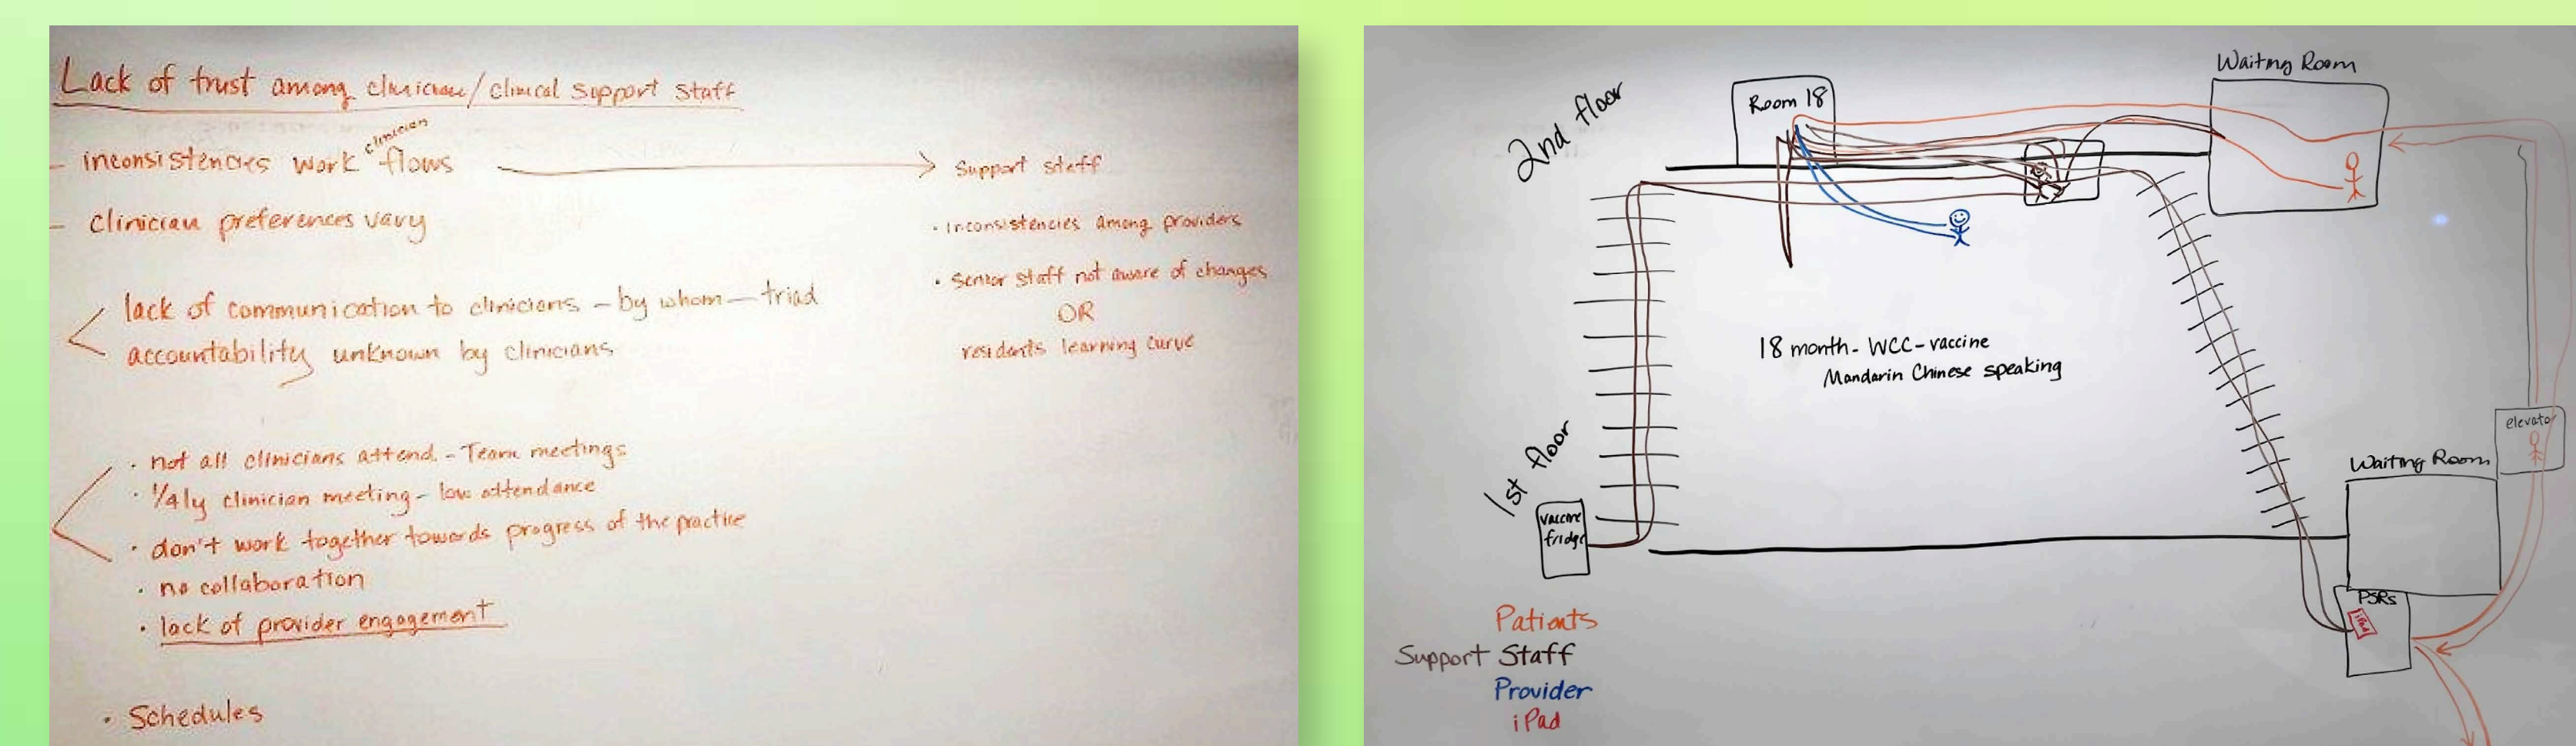 Lack of trust among clinician/clinical support staff
- inconsistencies work clinician flows
Support staff
- clinician preferences vary
· inconsistencies among providers
· senior staff not aware of changes
OR
residents learning curve
lack of communication to clinicians - by whom - triad
accountability unknown by clinicians
· not all clinicians attend - Team meetings
· 1/4ly clinician meeting - low attendance
· don't work together towards progress of the practice
· no collaboration
· lack of provider engagement
· Schedules
Waiting Room
Room 18
2nd floor
18 month - WCC - vaccine
Mandarin Chinese speaking
elevator
Waiting Room
1st floor
vaccine
fridge
PSRs
iPad
Patients
Support Staff
Provider
iPad